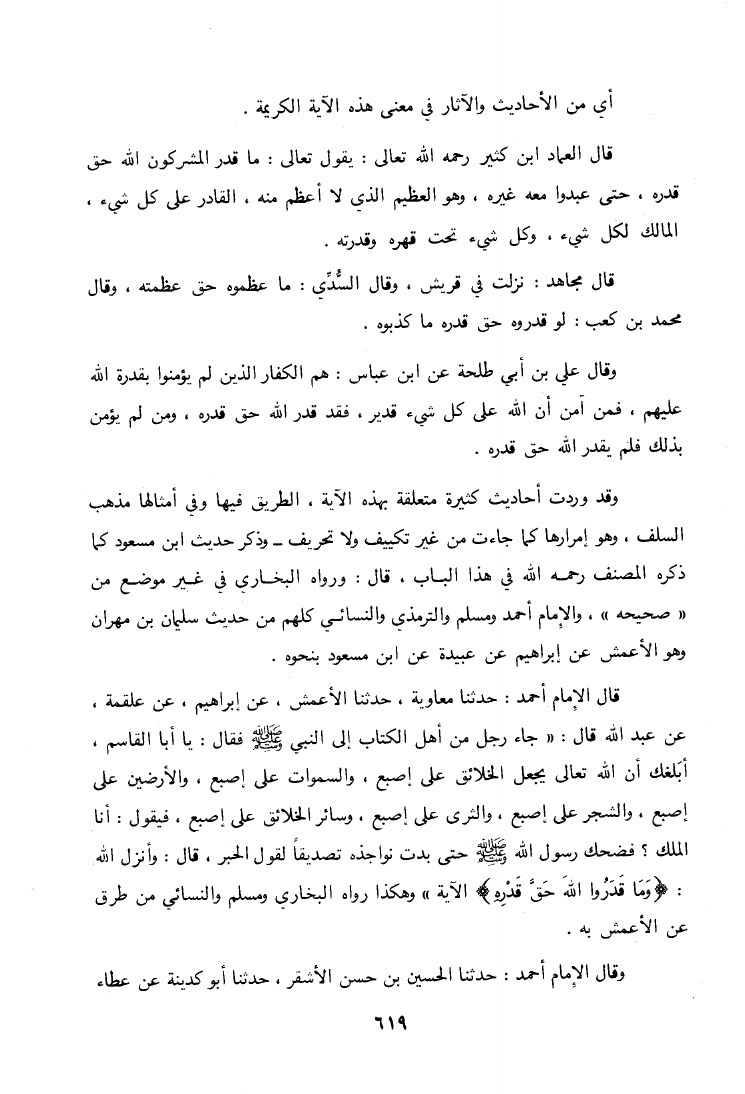 أي من الأحاديث والآثار في معنى هذه الآية الكريمة .
قال العماد ابن كثير رحمه الله تعالى : يقول تعالى : ما قدر المشركون الله حق
قدره ، حتى عبدوا معه غيره ، وهو العظيم الذي لا أعظم منه ، القادر على كل شيء ،
المالك لكل شيء ، وكل شيء تحت قهره وقدرته .
قال مجاهد : نزلت في قريش ، وقال السُّدِّي : ما عظموه حق عظمته ، وقال
محمد بن كعب : لو قدروه حق قدره ما كذبوه .
وقال علي بن أبي طلحة عن ابن عباس : هم الكفار الذين لم يؤمنوا بقدرة الله
عليهم ، فمن آمن أن الله على كل شيء قدير ، فقد قدر الله حق قدره ، ومن لم يؤمن
بذلك فلم يقدر الله حق قدره .
وقد وردت أحاديث كثيرة متعلقة بهذه الآية ، الطريق فيها وفي أمثالها مذهب
السلف ، وهو إمرارها كما جاءت من غير تكييف ولا تحريف ــ وذكر حديث ابن مسعود كما
ذكره المصنف رحمه الله في هذا الباب ، قال : ورواه البخاري في غير موضع من
« صحيحه » ، والإمام أحمد ومسلم والترمذي والنسائي كلهم من حديث سليمان بن مهران
وهو الأعمش عن إبراهيم عن عبيدة عن ابن مسعود بنحوه .
قال الإمام أحمد : حدثنا معاوية ، حدثنا الأعمش ، عن إبراهيم ، عن علقمة ،
عن عبد الله قال : « جاء رجل من أهل الكتاب إلى النبي ﷺ فقال : يا أبا القاسم ،
أبَلغك أن الله تعالى يجعل الخلائق على إصبع ، والسموات على إصبع ، والأرضين على
إصبع ، والشجر على إصبع ، والثرى على إصبع ، وسائر الخلائق على إصبع ، فيقول : أنا
الملك ؟ فضحك رسول الله ﷺ حتى بدت نواجذه تصديقاً لقول الحبر ، قال : وأنزل الله
: ﴿وَمَا قَدَرُوا اللهَ حَقَّ قَدْرِهِ﴾ الآية » وهكذا رواه البخاري ومسلم والنسائي من طرق
عن الأعمش به .
وقال الإمام أحمد : حدثنا الحسين بن حسن الأشقر ، حدثنا أبو كدينة عن عطاء
٦١٩